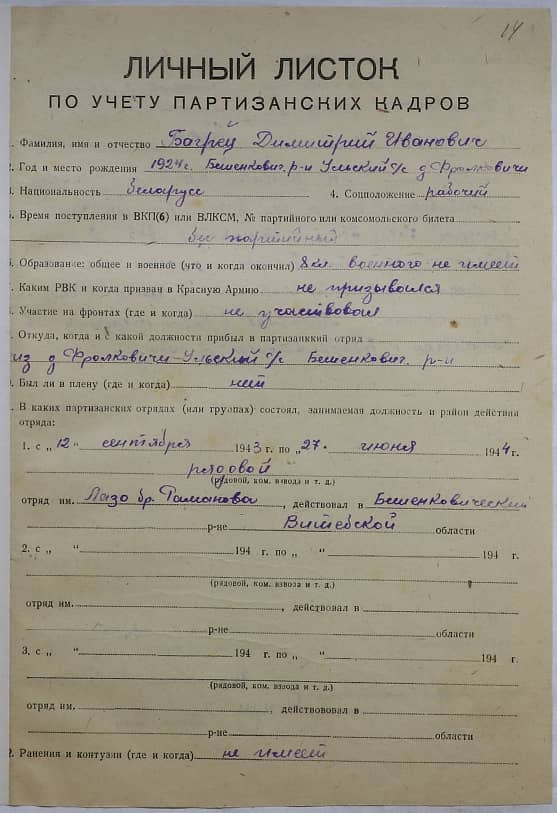 14
ЛИЧНЫЙ ЛИСТОК
ПО УЧЕТУ ПАРТИЗАНСКИХ КАДРОВ
1. Фамилия, имя и отчество Багрец Димитрий Иванович
2. Год и место рождения 1924 г. Бешенкович. р-н Ульский с/с д Фролковичи
3. Национальность белорусс 4. Соцположение рабочий
5. Время поступления в ВКП(б) или ВЛКСМ, № партийного или комсомольского билета
без партийный
6. Образование: общее и военное (что и когда окончил) 8 кл. военного не имеет
7. Каким РВК и когда призван в Красную Армию не призывался
8. Участие на фронтах (где и когда) не участвовал
9. Откуда, когда и с какой должности прибыл в партизанский отряд
из д Фролковичи-Ульский с/с Бешенкович. р-н
0. Был ли в плену (где и когда) нет
1. В каких партизанских отрядах (или группах) состоял, занимаемая должность и район действия
отряда:
1. с „12" сентября 1943 г. по „27" июня 1944 г.
рядовой
(рядовой, ком. взвода и т. д.)
отряд им. Лазо бр. Романова, действовал в Бешенковический
р-не Витебской области
2. с „ " 194 г. по „ " 194 г.
(рядовой, ком. взвоза и т. д.)
отряд им. , действовал в
р-не области
3. с „ " 194 г. по „ " 194 г.
(рядовой, ком. взвода и т. д.)
отряд им. , действововал в
р-не области
2. Ранения и контузии (где и когда) не имеет